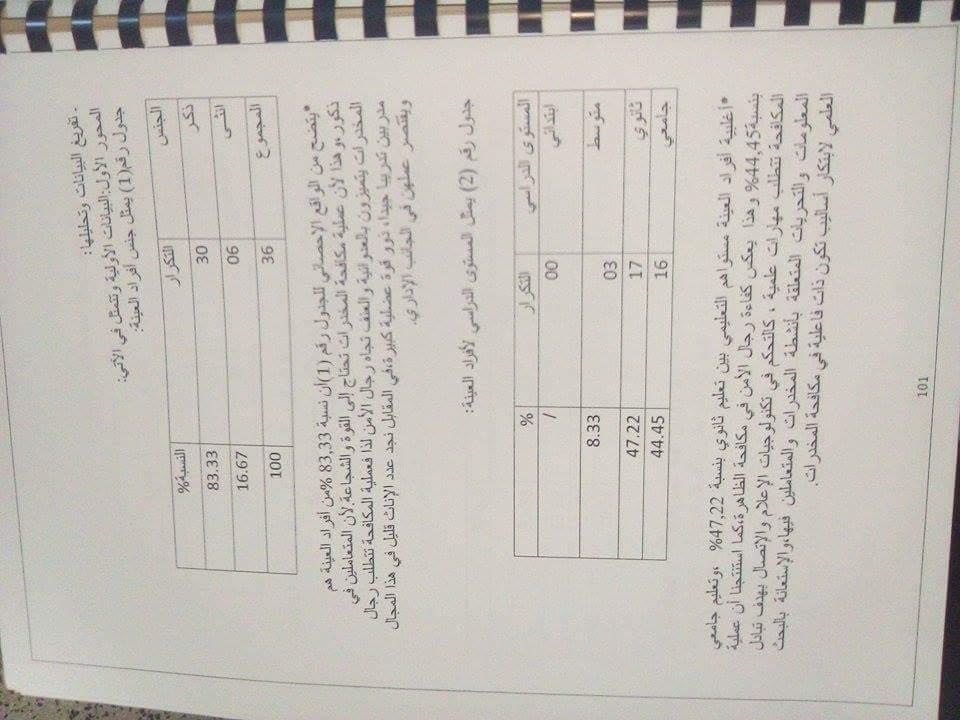 - تفريغ البيانات وتحليلها:
المحور الأول:البيانات الأولية وتتمثل في الأتي:
جدول رقم(1) يمثل جنس أفراد العينة:
الجنس التكرار النسبة%
ذكر 30 83.33
انثى 06 16.67
المجموع 36 100
*يتضح من الواقع الإحصائي للجدول رقم (1)أن نسبة 83,33 %من أفراد العينة هم
ذكور،و هذا لأن عملية مكافحة المخدرات تحتاج إلى القوة والشجاعة.لأن المتعاملين في
المخدرات يتميزون بالعدوانية والعنف تجاه رجال الأمن لذا فعملية المكافحة تتطلب رجال
مدربين تدريبا جيدا، ذوو قوة عضلية كبيرة،في المقابل نجد عدد الإناث قليل في هذا المجال
ويقتصر عملهن في الجانب الإداري.
جدول رقم (2) يمثل المستوى الدراسي لأفراد العينة:
المستوى الدراسي التكرار %
ابتدائي 00 /
متوسط 03 8.33
ثانوي 17 47.22
جامعي 16 44.45
*أغلبية أفراد العينة مستواهم التعليمي بين تعليم ثانوي بنسبة 47,22% ،وتعليم جامعي
بنسبة44,45% وهذا يعكس كفاءة رجال الأمن في مكافحة الظاهرة،كما استنتجنا أن عملية
المكافحة تتطلب مهارات علمية ، كالتحكم في تكنولوجيات الإعلام والاتصال بهدف تبادل
المعلومات والتحريات المتعلقة بأنشطة المخدرات والمتعاملين فيها،والإستعانة بالبحث
العلمي لابتكار أساليب تكون ذات فاعلية في مكافحة المخدرات.
101